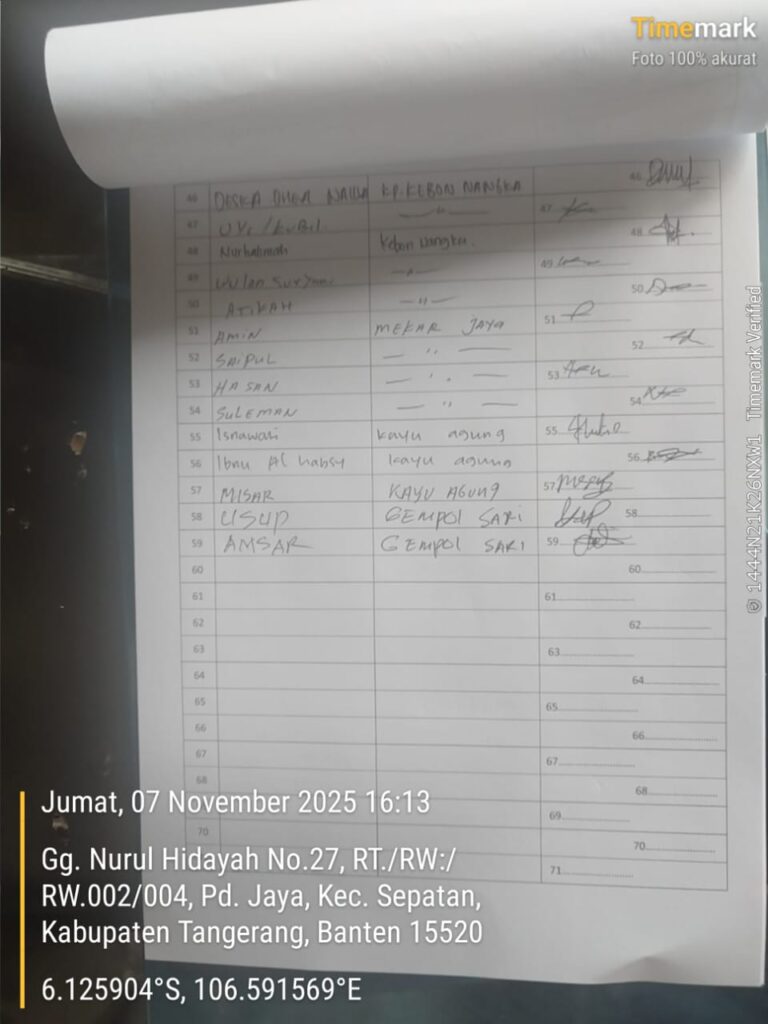 Timemark
Foto 100% akurat
46 DESKA DHEA NAILA KP. KEBON NANGKA 46
47 UYI / 47
48 Nurhalimah Kebon Nangka. 48
49 Wulan Suryani — " — 49
50 ATIKAH — " — 50
51 AMIN MEKAR JAYA 51
52 SAIPUL — " — 52
53 HASAN — " — 53
54 SULEMAN — " — 54
55 Isnawati kayu agung 55
56 Ibnu Al habsy kayu agung 56
57 MISAR KAYU AGUNG 57
58 USUP GEMPOL SARI 58
59 AMSAR GEMPOL SARI 59
60 60
61 61
62 62
63 63
64 64
65 65
66 66
67 67
68 68
69
70 70
71
Jumat, 07 November 2025 16:13
Gg. Nurul Hidayah No.27, RT./RW:/
RW.002/004, Pd. Jaya, Kec. Sepatan,
Kabupaten Tangerang, Banten 15520
6.125904°S, 106.591569°E
© 1444N21K26NXW1 Timemark Verified